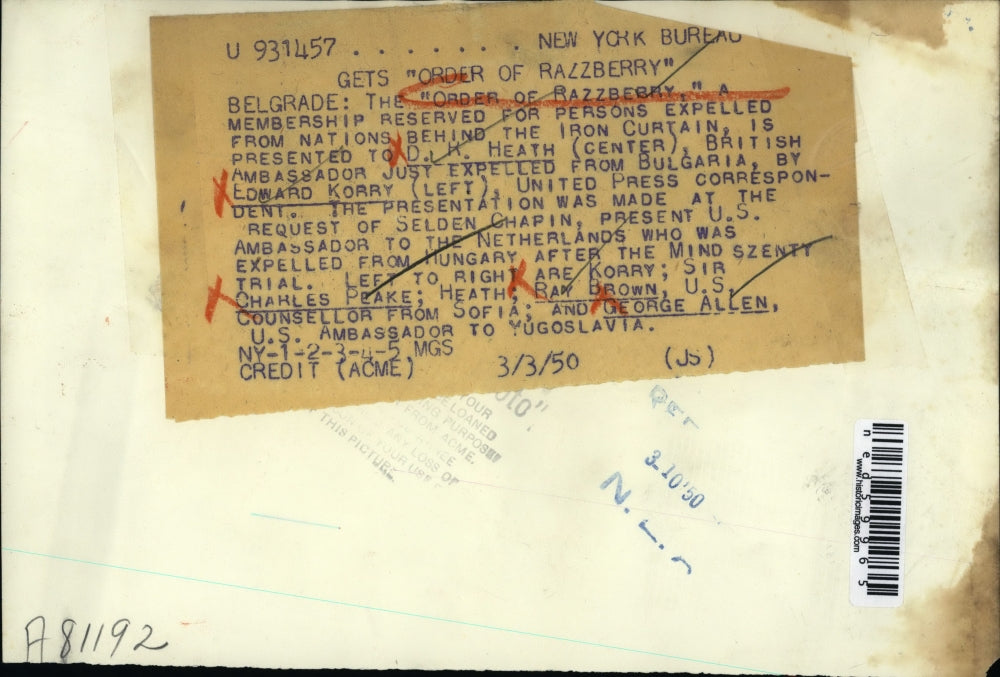 U 931457 . . . . . . . NEW YORK BUREAU
GETS "ORDER OF RAZZBERRY"
BELGRADE: THE "ORDER OF RAZZBERRY," A
MEMBERSHIP RESERVED FOR PERSONS EXPELLED
FROM NATIONS BEHIND THE IRON CURTAIN, IS
PRESENTED TO D. HEATH (CENTER), BRITISH
AMBASSADOR JUST EXPELLED FROM BULGARIA, BY
EDWARD KORRY (LEFT), UNITED PRESS CORRESPON-
DENT. THE PRESENTATION WAS MADE AT THE
REQUEST OF SELDEN CHAPIN, PRESENT U.S.
AMBASSADOR TO THE NETHERLANDS WHO WAS
EXPELLED FROM HUNGARY AFTER THE MINDSZENTY
TRIAL. LEFT TO RIGHT ARE KORRY; SIR
CHARLES PEAKE; HEATH; RAY BROWN, U.S.
COUNSELLOR FROM SOFIA; AND GEORGE ALLEN,
U.S. AMBASSADOR TO YUGOSLAVIA.
NY-1-2-3-4-5, MGS
CREDIT (ACME) 3/3/50 (JS)
YOUR
LOANED
PURPOSE
FROM ACME.
ANY LOSS OF
YOUR USE
THIS PICTURE
REF
3-10'50
N.
ned59965
www.historicimages.com
A81192